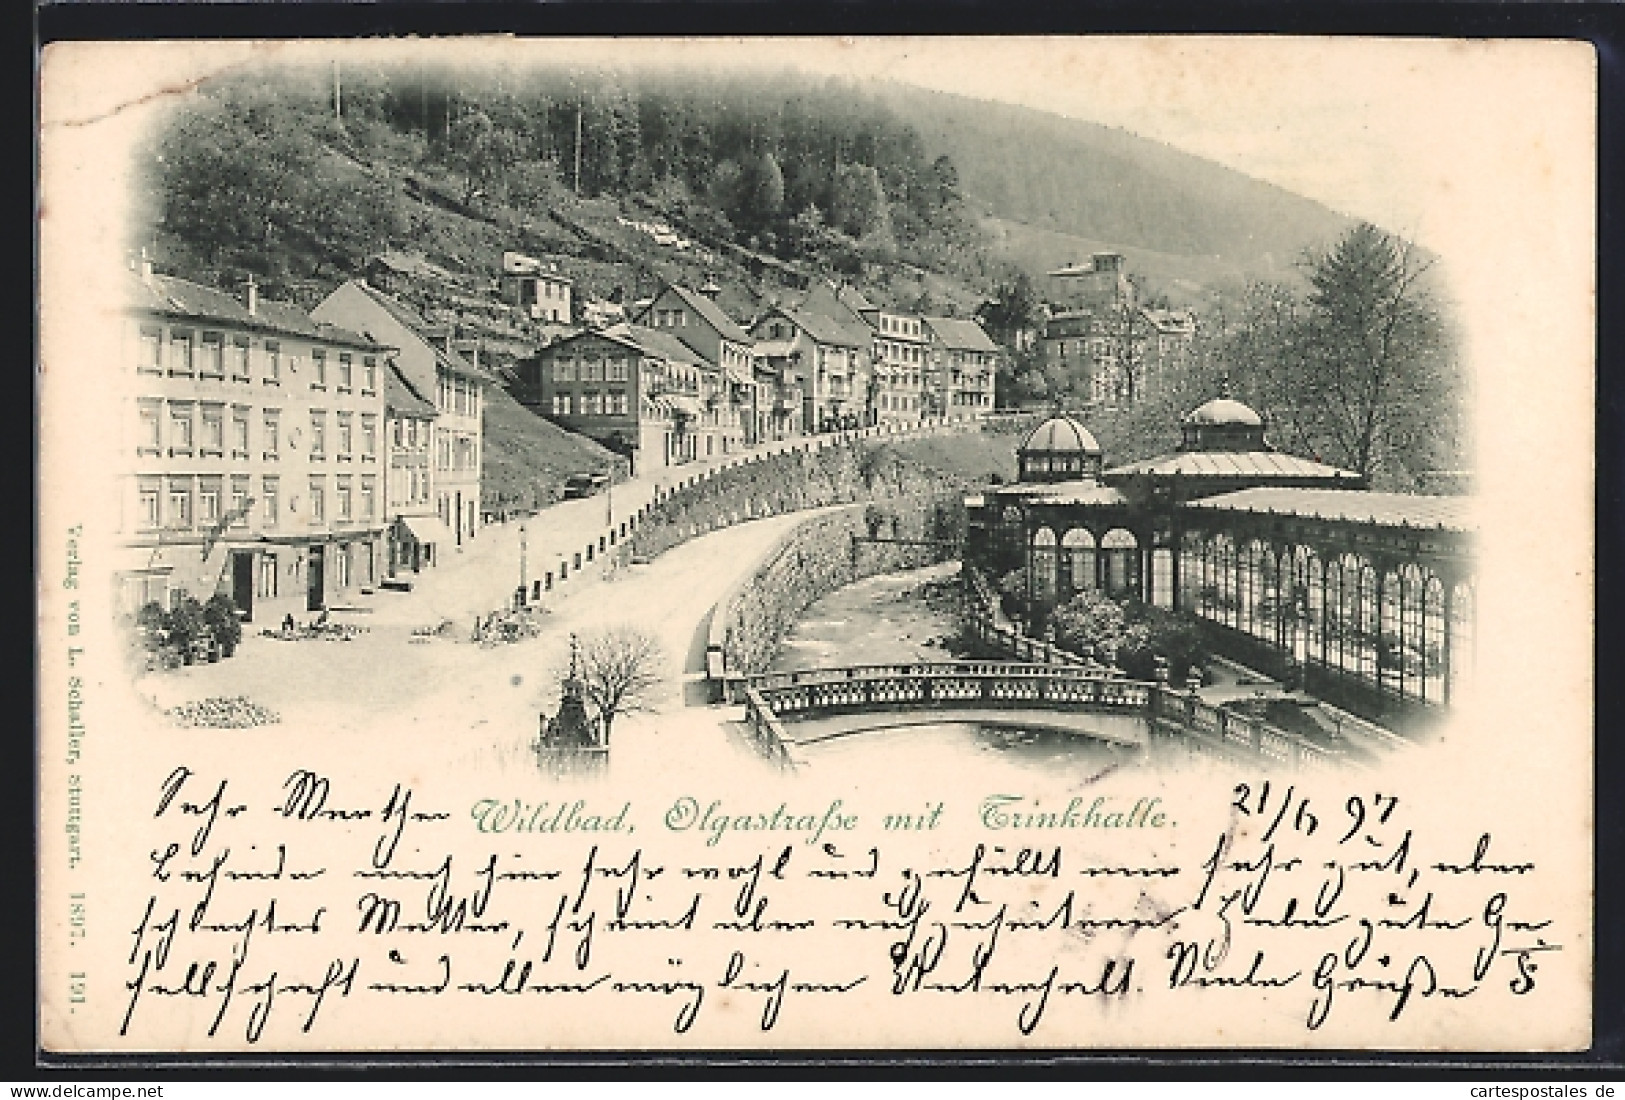 Verlag von L. Schaller, Stuttgart. 1897. 191.
Wildbad, Olgastraße mit Trinkhalle.
Sehr Werther 21/6 97
Befinde mich hier sehr wohl und gefällt mir sehr gut, aber
schlechtes Wetter, scheint aber aufzuheitern. Habe gute Ge-
sellschaft und allen möglichen Unterhalt. Viele Grüße
www.ansichtskartenversand.com
cartespostales de